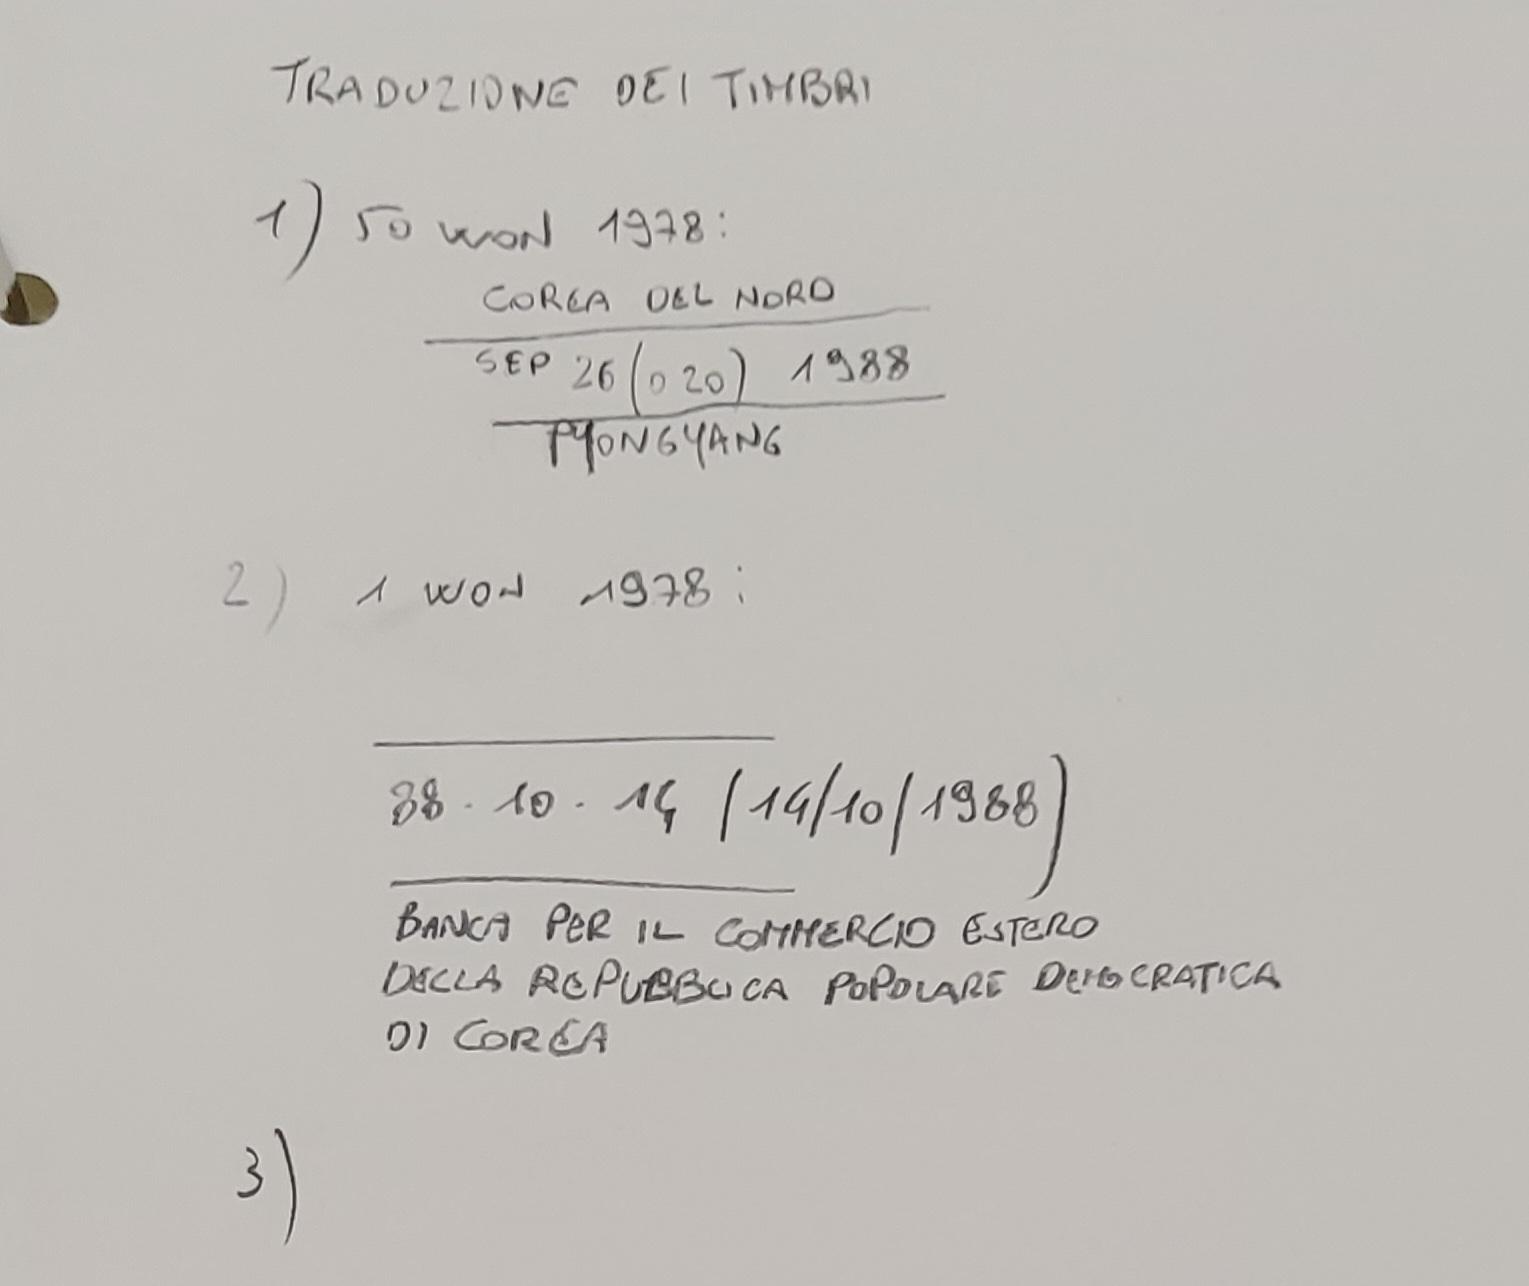 TRADUZIONE DEI TIMBRI
1) 50 WON 1978:
COREA DEL NORD
SEP 26 (O 20) 1988
PYONGYANG
2) 1 WON 1978:
88 . 10 . 14 (14/10/1988)
BANCA PER IL COMMERCIO ESTERO
DELLA REPUBBLICA POPOLARE DEMOCRATICA
DI COREA
3)